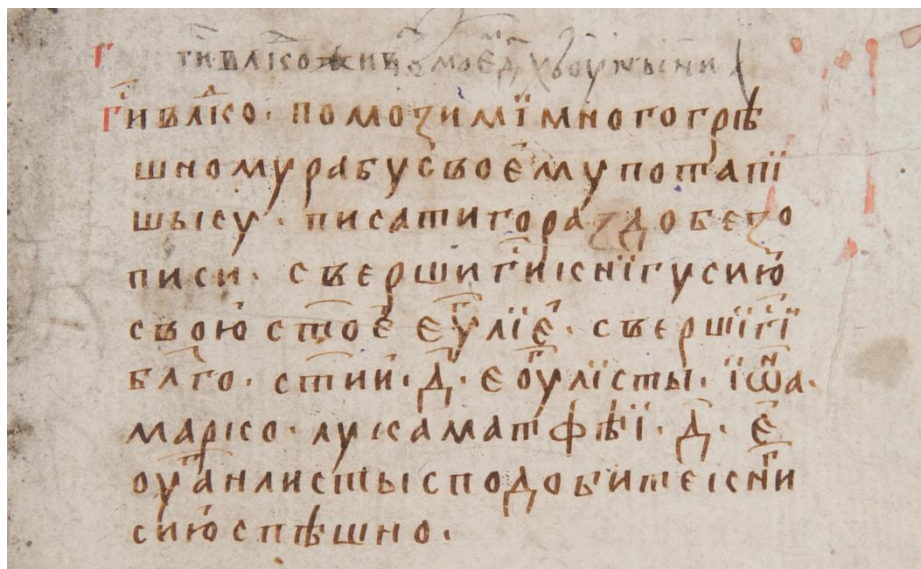 г҃и влⷣко
г҃и влⷣко · помози мї многогрѣ
шному рабу своемⷹ потапї
шысу · писати гораздо безо
писи · сверши г҃и кнїгу сию
свою ст҃ое еѵ҃лїе · свершї г҃ї
бл҃го · ст҃ии · д҃ · еоу҃лїсты · їѡⷩ҇а ·
марко · лука матфѣї · д҃ · е
оуаⷢ҇нлисты сподобите кн҃и
сию спѣшно ·